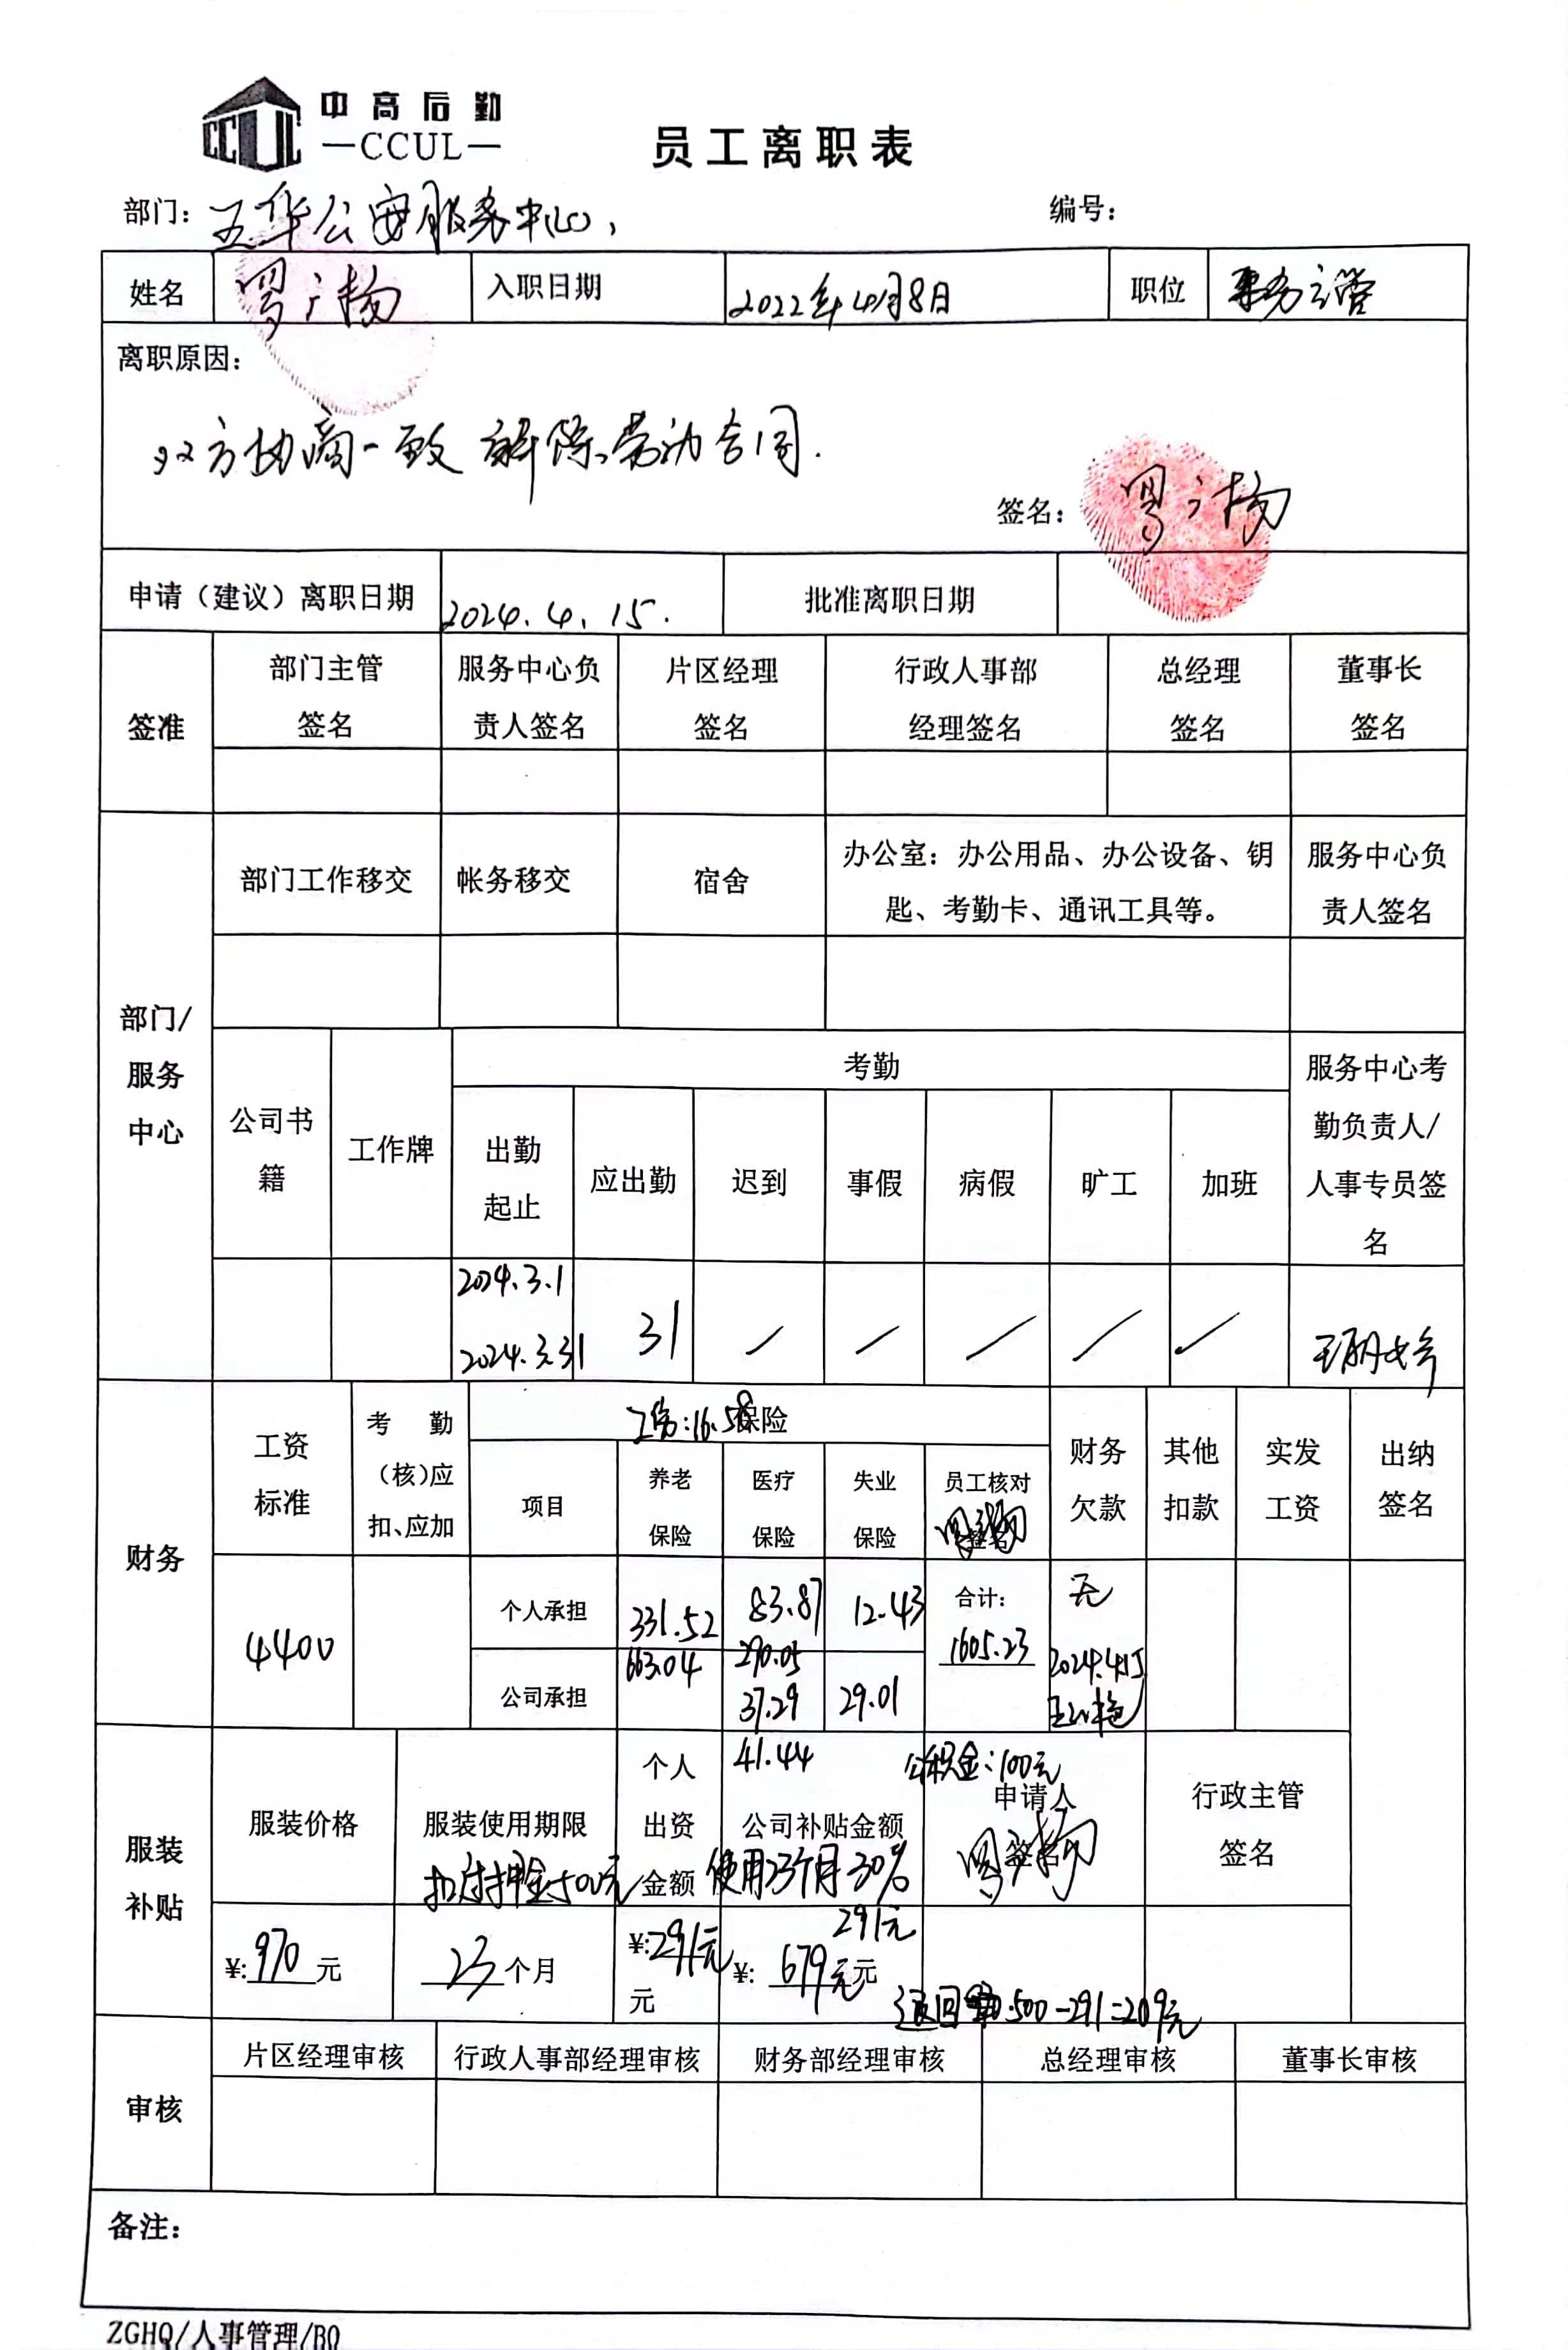 中高后勤
CCUL
—CCUL—
员工离职表
部门：五华公安服务中心，
编号：
姓名 罗广杨 入职日期 2022年4月8日 职位 事务主管
离职原因：
双方协商一致 解除劳动合同.
签名：罗广杨
申请（建议）离职日期 2024.4.15. 批准离职日期
签准
部门主管签名 服务中心负责人签名 片区经理签名 行政人事部经理签名 总经理签名 董事长签名
部门/服务中心
部门工作移交 帐务移交 宿舍 办公室：办公用品、办公设备、钥匙、考勤卡、通讯工具等。 服务中心负责人签名
公司书籍 工作牌 考勤 服务中心考勤负责人/人事专员签名
出勤起止 应出勤 迟到 事假 病假 旷工 加班
2024.3.1
2024.3.31 31 / / / / /
财务
工资标准 考勤（核）应扣、应加 工伤：16.58 保险 财务欠款 其他扣款 实发工资 出纳签名
项目 养老保险 医疗保险 失业保险 员工核对签名 罗广杨
4400 个人承担 331.52 83.87 12.43 合计：1605.23 无
公司承担 663.04 290.05 37.29 29.01 2024.4.15
41.44 公积金：100元
服装补贴
服装价格 服装使用期限 个人出资金额 公司补贴金额 申请人签名 罗广杨 行政主管签名
扣过押金500元 使用23个月30%
291元
¥：970元 23个月 ¥：291元元 ¥：679元元
退回 500-291=209元
审核
片区经理审核 行政人事部经理审核 财务部经理审核 总经理审核 董事长审核
备注：
ZGHQ/人事管理/B0